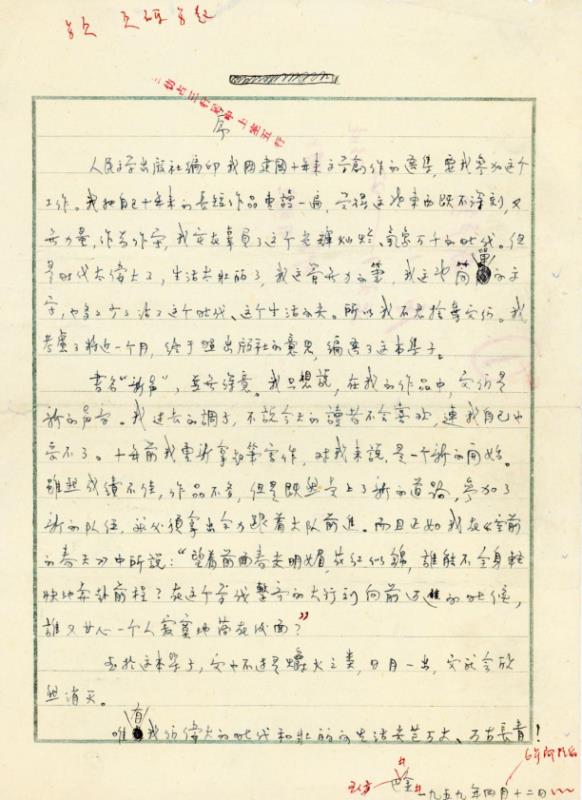 序
人民文学出版社编印我国建国十年来文学创作的选集，要我参加这个
工作。我把自己十年来的长短作品重读一遍，觉得这些东西既不深刻，又
无力量，作为作家，我实在辜负了这个光辉灿烂、气象万千的时代。但
是时代太伟大了，生活太壮丽了，我这管无力的笔，我这些简單的文
字，也多多少少沾了这个时代、这个生活的光。所以我不君捨棄它们。我
考虑了将近一个月，终于照出版社的意思，编选了这本集子。
書名“新声”，並無深意。我只想說，在我的作品中，它们是
新的声音。我过去的調子，不說今天的讀者不会喜欢，連我自己也
受不了。十年前我重新拿起筆寫作，对我来說，是一个新的開始。
雖然成績不佳，作品不多，但是既然走上了新的道路，参加了
新的队伍，就必須拿出全力跟着大队前進。而且正如我在《空前
的春天》中所說：“望着前面春光明媚，花红似錦，誰能不全身輕
快地奔赴前程？在这个步伐整齐的大行列向前迈進的时候，
誰又甘心一个人寂寞地落在後面？”
至於这本集子，它也不过是爝火之类，日月一出，它就会欣
然消灭。
唯有我们偉大的时代和壯丽的生活光芒万丈、万古長青！
巴金
一九五九年四月十二日